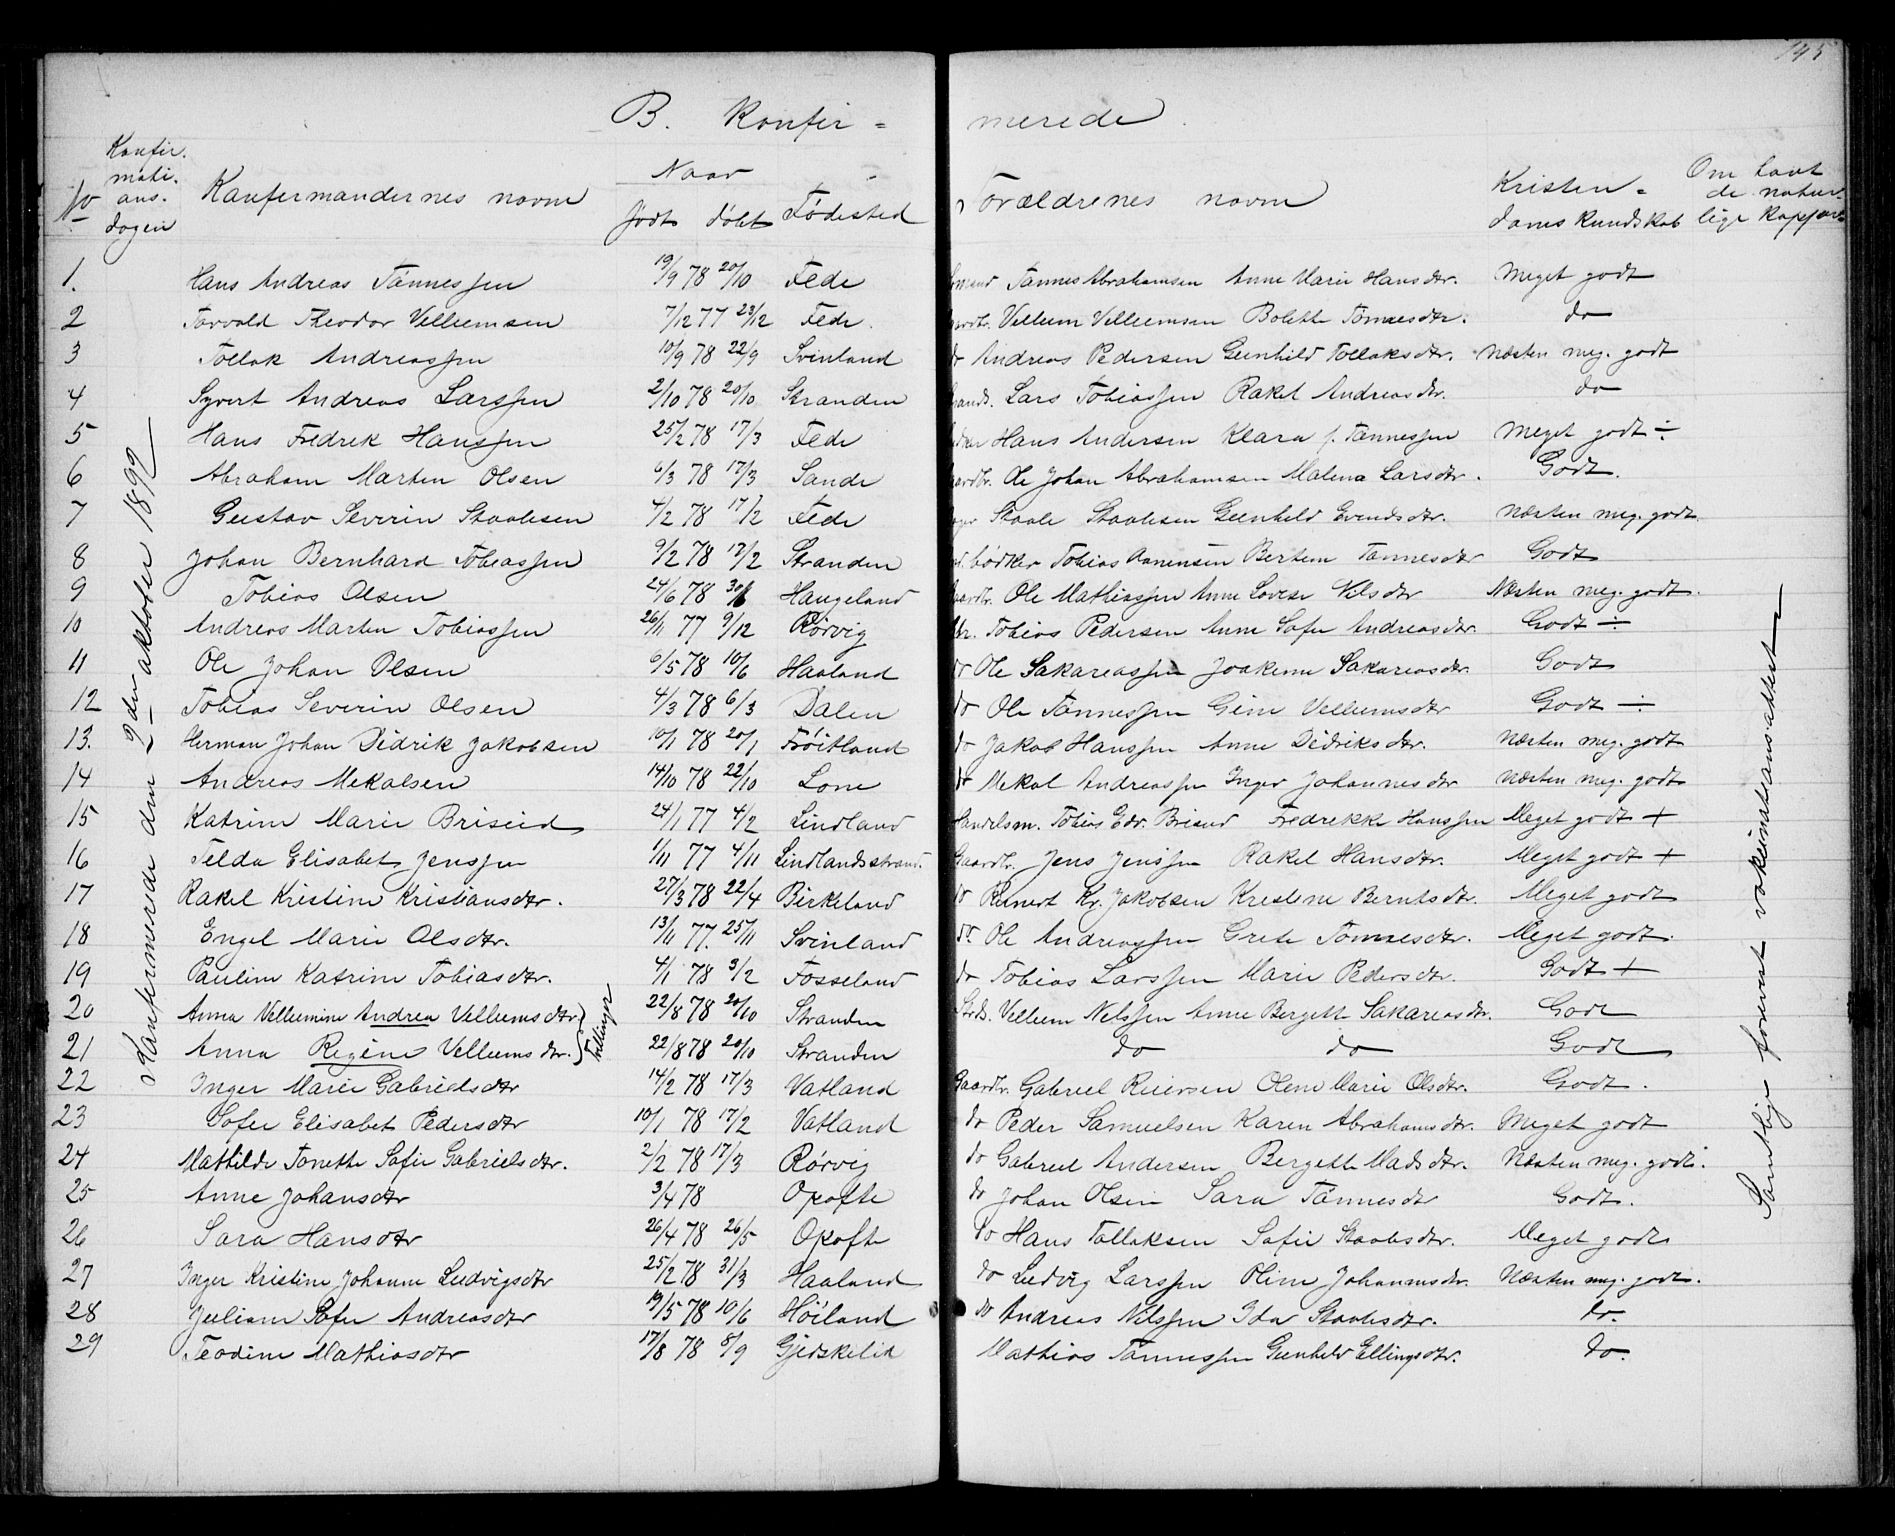 145
B. Konfir = merede
No Konfirmati-ons-dagen Konfermandernes navne Naar født døbt Fødested Forældrenes navne Kristen=doms kundskab Om havt de naturlige kopper
Konfermerede den 2den oktober 1892
1. Hans Andreas Tønnessen 19/9 78 20/10 Fede Tønnes Abrahamsen Anne Marie Hansdtr. Meget godt
2 Torvald Theodor Velleumsen 7/12 77 23/12 Fede. Gaardbr. Velleum Velleumsen Bolette Tønnesdtr. do
3 Tollak Andreassen 10/9 78 22/9 Svinland do Andreas Pedersen Gunhild Tollaksdtr. Næsten meg. godt
4 Syvert Andreas Larssen 2/10 78 20/10 Stranden Lars Tobiassen Rakel Andreasdtr. do
5 Hans Fredrik Hanssen 25/2 78 17/3 Fede Hans Andersen Klara f. Tønnessen Meget godt ÷
6 Abraham Marten Olsen 6/3 78 17/3 Sande Gaardbr. Ole Johan Abrahamsen Malena Larsdtr. Godt.
7 Gustav Severin Staalesen 4/2 78 17/2 Fede Staale Staalesen Gunhild Evendsdtr. Næsten meg. godt
8 Johan Bernhard Tobiassen 9/2 78 17/2 Stranden bødker Tobias Aanensen Bertine Tønnesdtr Godt
9 Tobias Olsen 24/6 78 30/6 Haugeland Gaardbr. Ole Mathiassen Anne Lovise Nilsdtr Næsten meg. godt.
10 Andreas Marten Tobiassen 26/11 77 9/12 Rørvig Tobias Pedersen Anne Sofie Andreasdtr. Godt ÷
11 Ole Johan Olsen 6/5 78 10/6 Haaland do Ole Sakareassen Joakime Sakareasdtr. Godt
12 Tobias Severin Olsen 4/3 78 6/3 Dalen do Ole Tønnessen Gine Velleumsdtr Godt ÷
13. Herman Johan Didrik Jakobsen 10/1 78 20/1 Frøitland do Jakob Hanssen Anne Didriksdtr. Næsten meg. godt
14 Andreas Mekalsen 14/10 78 22/10 Lone do Mekal Andreassen Inger Johannesdtr Næsten meg. godt
15 Katrine Marie Briseid 24/1 77 4/2 Lindland Handelsm. Tobias Edv. Briseid Fredrikke Hanssen Meget godt +
16 Telda Elisabet Jenssen 1/11 77 4/11 Lindlandsstrand. Gaardbr. Jens Jenssen Rakel Hansdtr. Meget godt +
17 Rakel Kristine Kristiansdtr. 27/3 78 22/4 Birkeland do Reinert Kr. Jakobsen Kristine Berntsdtr. Meget godt
18 Engel Marie Olsdtr. 13/11 77. 25/11 Svinland do. Ole Andreassen Grete Tønnesdtr. Meget godt.
19 Pauline Katrine Tobiasdtr. 4/1 78 3/2 Fosseland do Tobias Larssen Marie Pedersdtr. Godt +
20 Anna Velleumine Andrea Velleumsdtr. Tvillinger 22/8 78 20/10 Stranden Strds. Velleum Nelssen Anne Bergette Sakareasdtr. Godt
21 Anna Regine Velleumsdtr. 22/8 78 20/10 Stranden do do Godt
22 Inger Marie Gabrielsdtr 14/2 78 17/3 Vatland Gaardbr. Gabriel Reiersen Olene Marie Olsdtr. Godt.
23 Sofie Elisabet Pedersdtr 10/1 78 17/2 Vatland do Peder Samuelsen Karen Abrahamsdtr. Meget godt
24 Mathilde Tonette Sofie Gabrielsdtr. 2/2 78 17/3 Rørvig do Gabriel Andersen Bergette Madsdtr. Næsten meg. godt.
25 Anne Johansdtr 3/4 78 Opofte do Johan Olsen Sara Tønnesdtr Godt.
26 Sara Hansdtr 26/4 78 26/5 Opofte do Hans Tollaksen Sofie Staalesdtr. Meget godt
27 Inger Kristine Johanne Ludvigsdtr 25/2 78 31/3 Haaland do Ludvig Larssen Oline Johannesdtr. Næsten meg. godt.
28 Juliane Sofie Andreasdtr 19/5 78 10/6 Høiland do Andreas Nilssen Ida Staalesdtr. do.
29 Teodine Mathiasdtr 17/8 78 8/9 Gjedskelid Mathias Tønnessen Gunhild Ellingsdtr. do.
Samtlige forevist vakcinationsattest